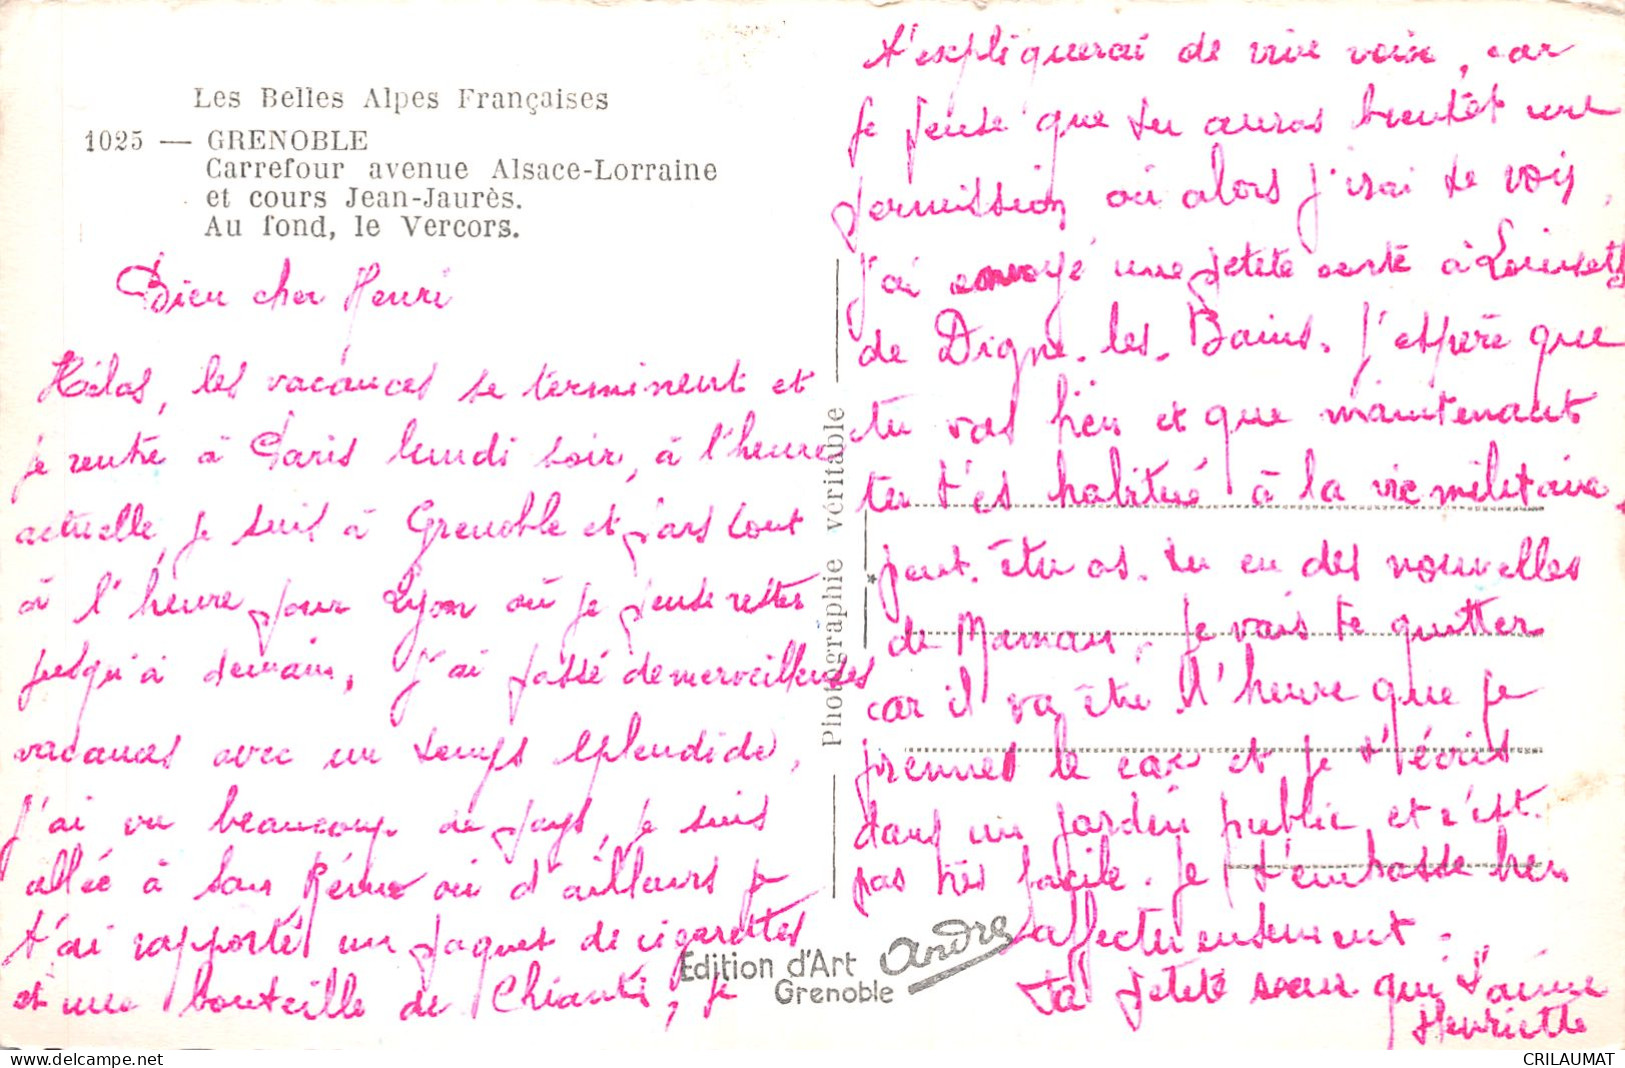 Les Belles Alpes Françaises
1025 — GRENOBLE
Carrefour avenue Alsace-Lorraine
et cours Jean-Jaurès.
Au fond, le Vercors.
Bien cher Henri
Hélas, les vacances se terminent et
je rentre à Paris lundi soir, à l'heure
actuelle, je suis à Grenoble et pars tout
à l'heure pour Lyon où je pense rester
jusqu'à demain, j'ai passé de merveilleuses
vacances avec un temps splendide,
J'ai vu beaucoup de pays, je suis
allée à San Rémo où d'ailleurs je
t'ai rapporté un paquet de cigarettes
et une bouteille de Chianti, je
t'expliquerai de vive voix, car
je pense que tu auras bientôt une
permission ou alors j'irai te voir,
J'ai envoyé une petite carte à
de Digne-les-Bains. J'espère que
tu vas bien et que maintenant
tu t'es habitué à la vie militaire,
peut-être as-tu eu des nouvelles
de Maman, Je vais te quitter
car il va être l'heure que je
prennes le car et je t'écris
dans un jardin public, et c'est
pas très facile. Je t'embrasse bien
affectueusement.
Ta petite sœur qui t'aime
Henriette
Photographie véritable
Edition d'Art André
Grenoble
CRILAUMAT
delcampe.net